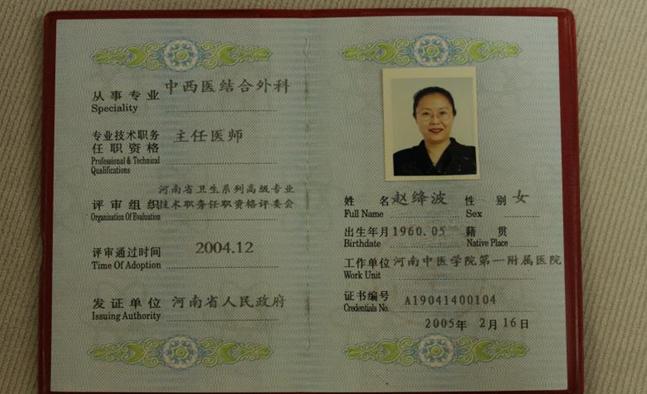 从事专业 中西医结合外科
Speciality
专业技术职务 主任医师
任职资格
Professional & Technical
Qualifications
河南省卫生系列高级专业
评审组织 技术职务任职资格评委会
Organization Of Evaluation
评审通过时间 2004.12
Time Of Adoption
发证单位 河南省人民政府
Issuing Authority
姓名 赵绛波 性别 女
Full Name Sex
出生年月 1960.05 籍贯
Birthdate Native Place
工作单位 河南中医学院第一附属医院
Work Unit
证书编号 A19041400104
Credentials No.
2005年 2月16日